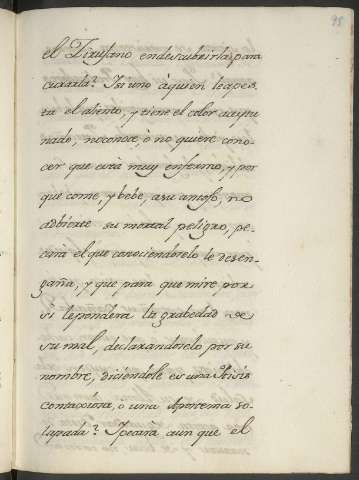 95
el Zirujano en descubrirla para
curarla? Y si uno à quien le apes-
ta el aliento, y tiene el color aceytu
nado, no conoce, ò no quiere cono-
cer que está muy enfermo, y por
que come, y bebe, a su antojo, no
adbierte su mortal peligro, pe-
cará el que conociendoselo le desen-
gaña, y que para que mire por
si le pondera la grabedad de
su mal, declarandoselo por su
nombre, diciendole es una Ptisis
contaxiosa, ò una Apostema so-
lapada? Y pecarà aun que el